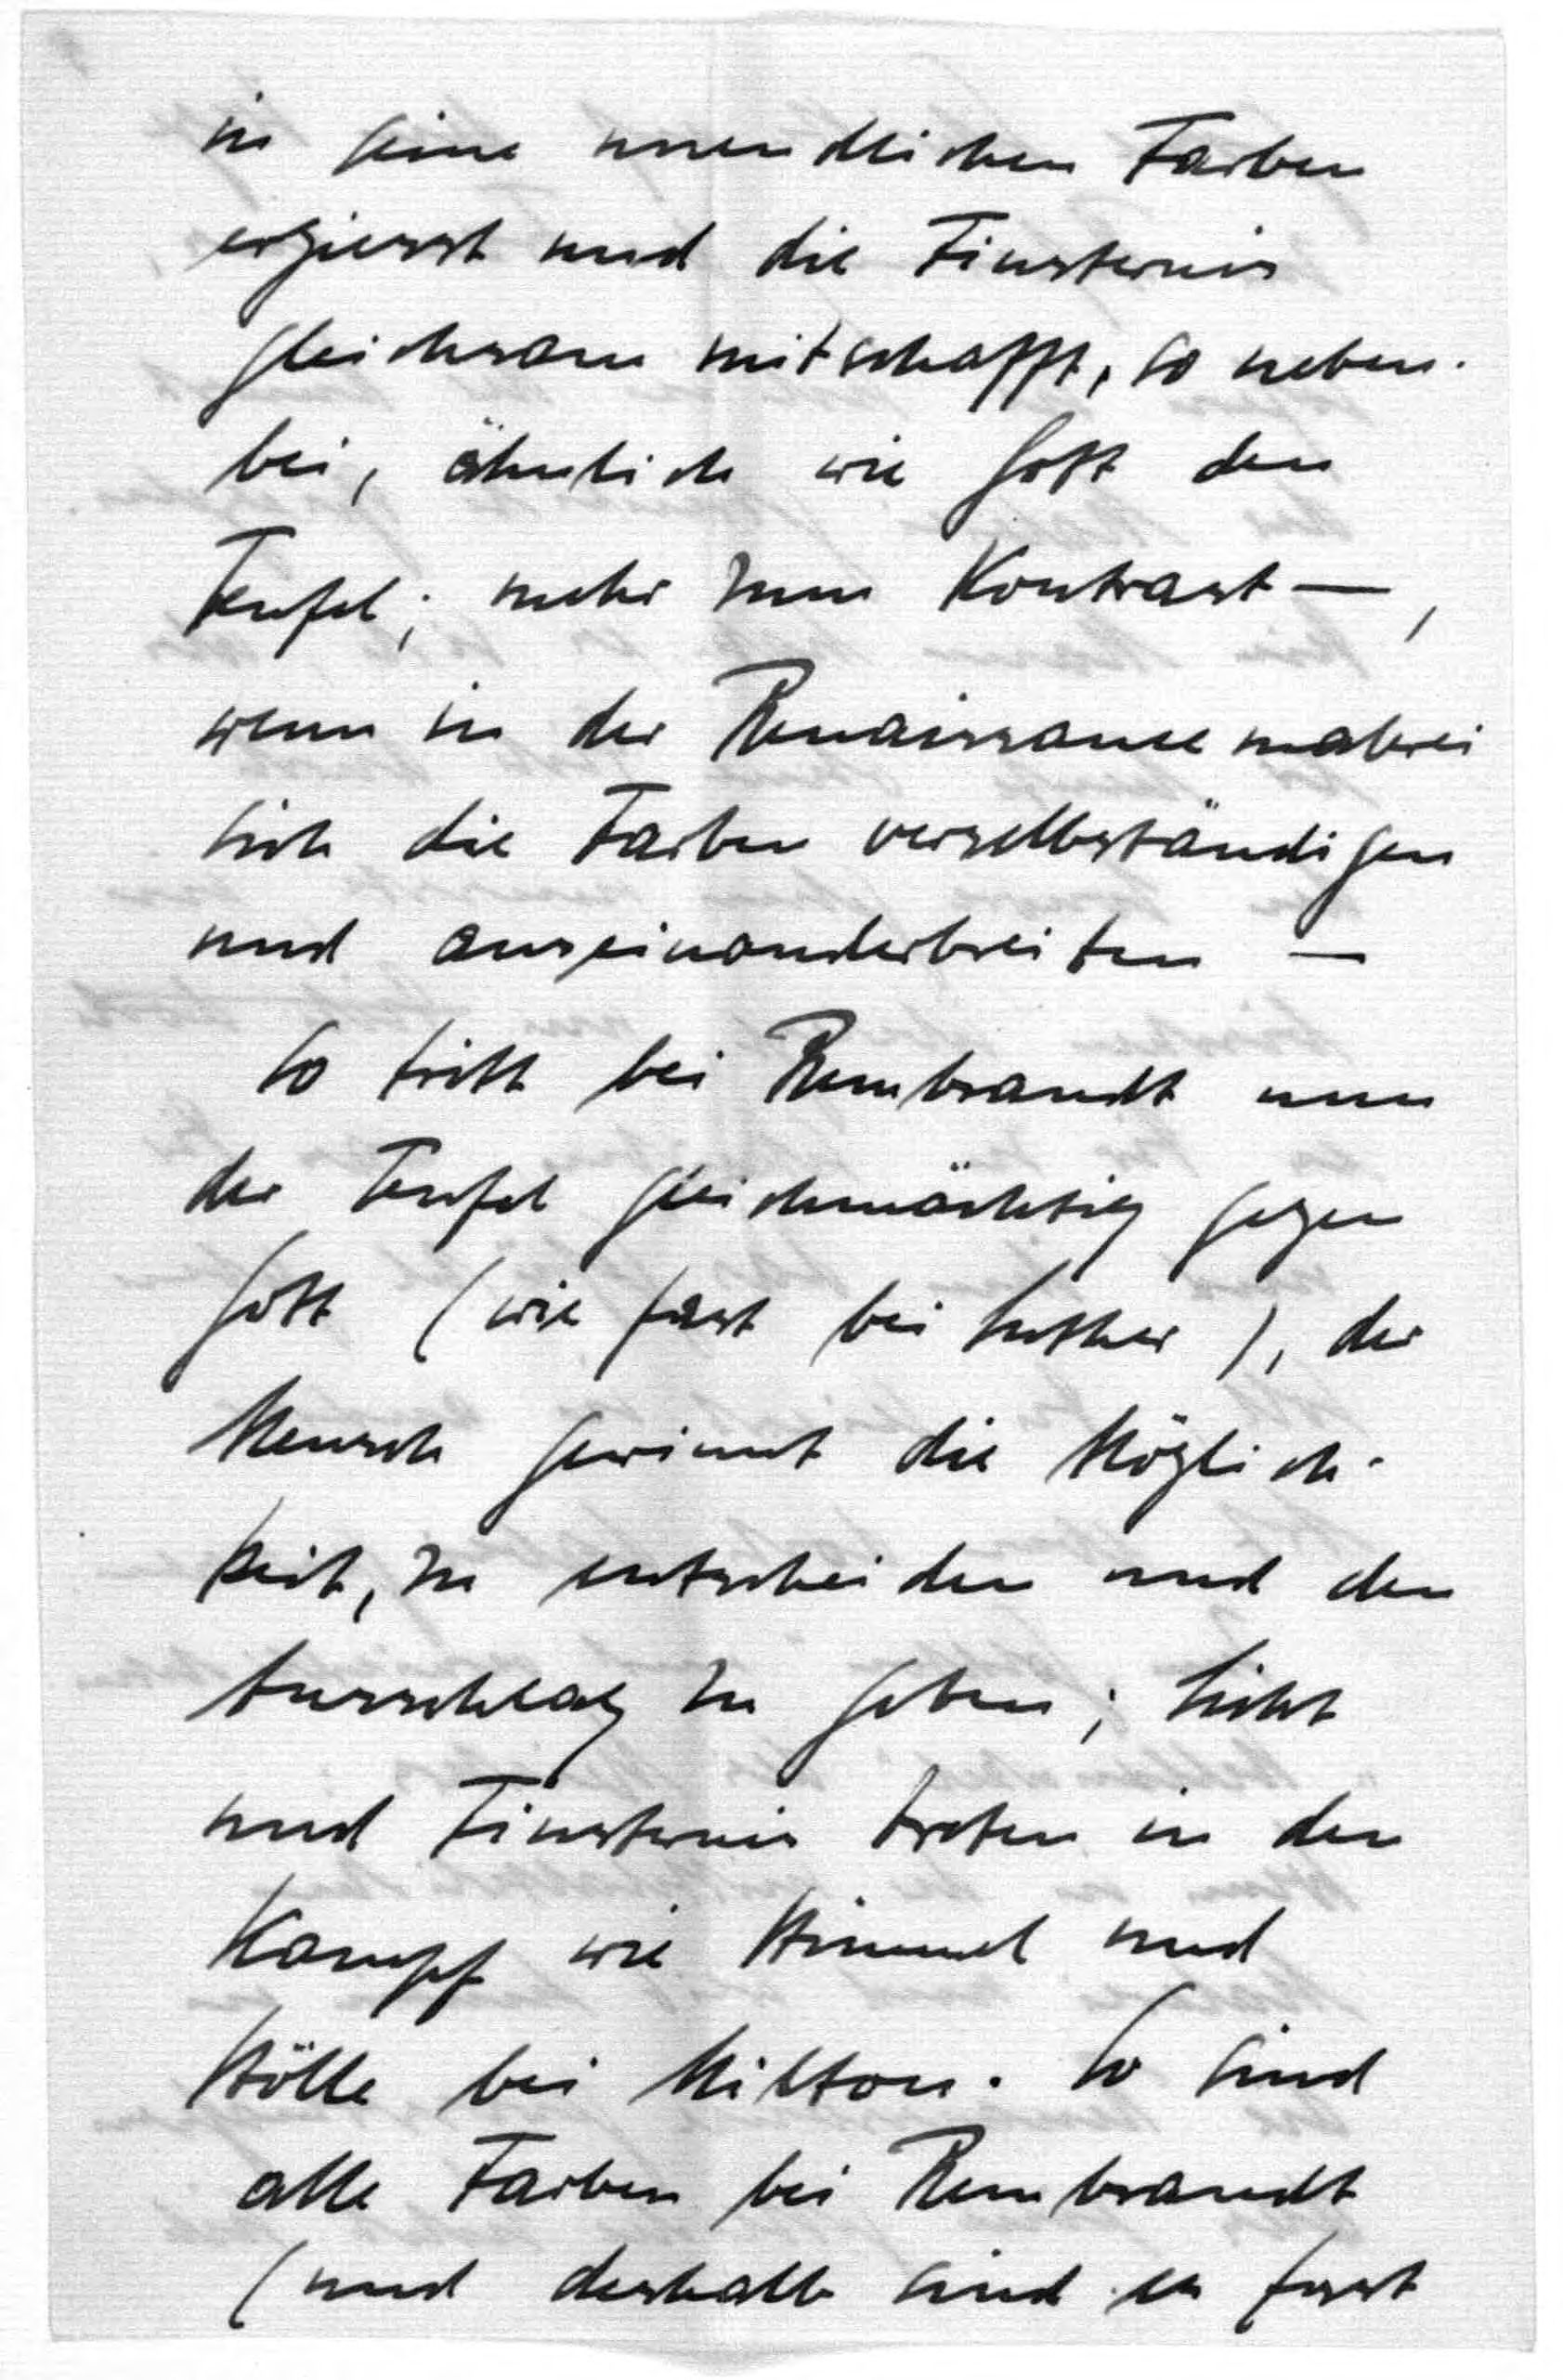 in seine unendlichen Farben
ergiesst und die Finsternis
gleichsam mitschafft, so neben-
bei, ähnlich wie Gott den
Teufel; mehr zum Kontrast —,
wenn in der Renaissancemalerei
sich die Farben verselbständigen
und auseinanderbreiten —
So tritt bei Rembrandt nun
der Teufel gleichmächtig gegen
Gott (wie fast bei Luther), der
Mensch gewinnt die Möglich-
keit, zu entscheiden und den
Ausschlag zu geben; Licht
und Finsternis treten in den
Kampf wie Himmel und
Hölle bei Milton. So sind
alle Farben bei Rembrandt
(und deshalb sind es fast